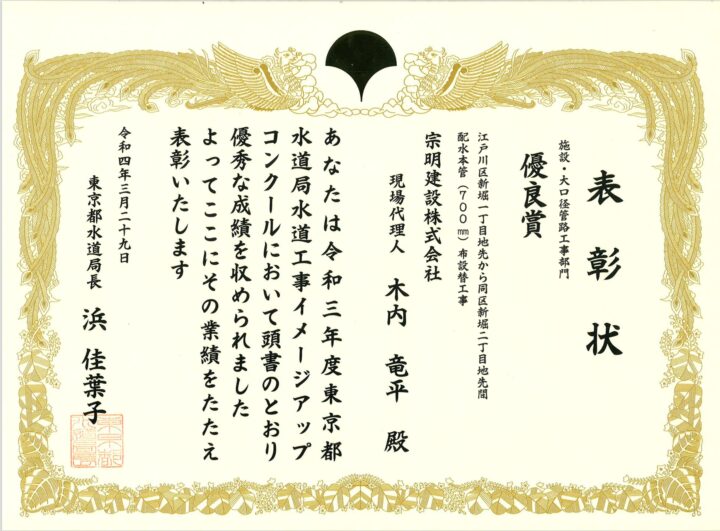 表彰状
施設・大口径管路工事部門
優良賞
江戸川区新堀一丁目地先から同区新堀二丁目地先間
配水本管(700㎜)布設替工事
宗明建設株式会社
現場代理人 木内 竜平 殿
あなたは令和三年度東京都
水道局水道工事イメージアップ
コンクールにおいて頭書のとおり
優秀な成績を収められました
よってここにその業績をたたえ
表彰いたします
令和四年三月二十九日
東京都水道局長 浜 佳葉子